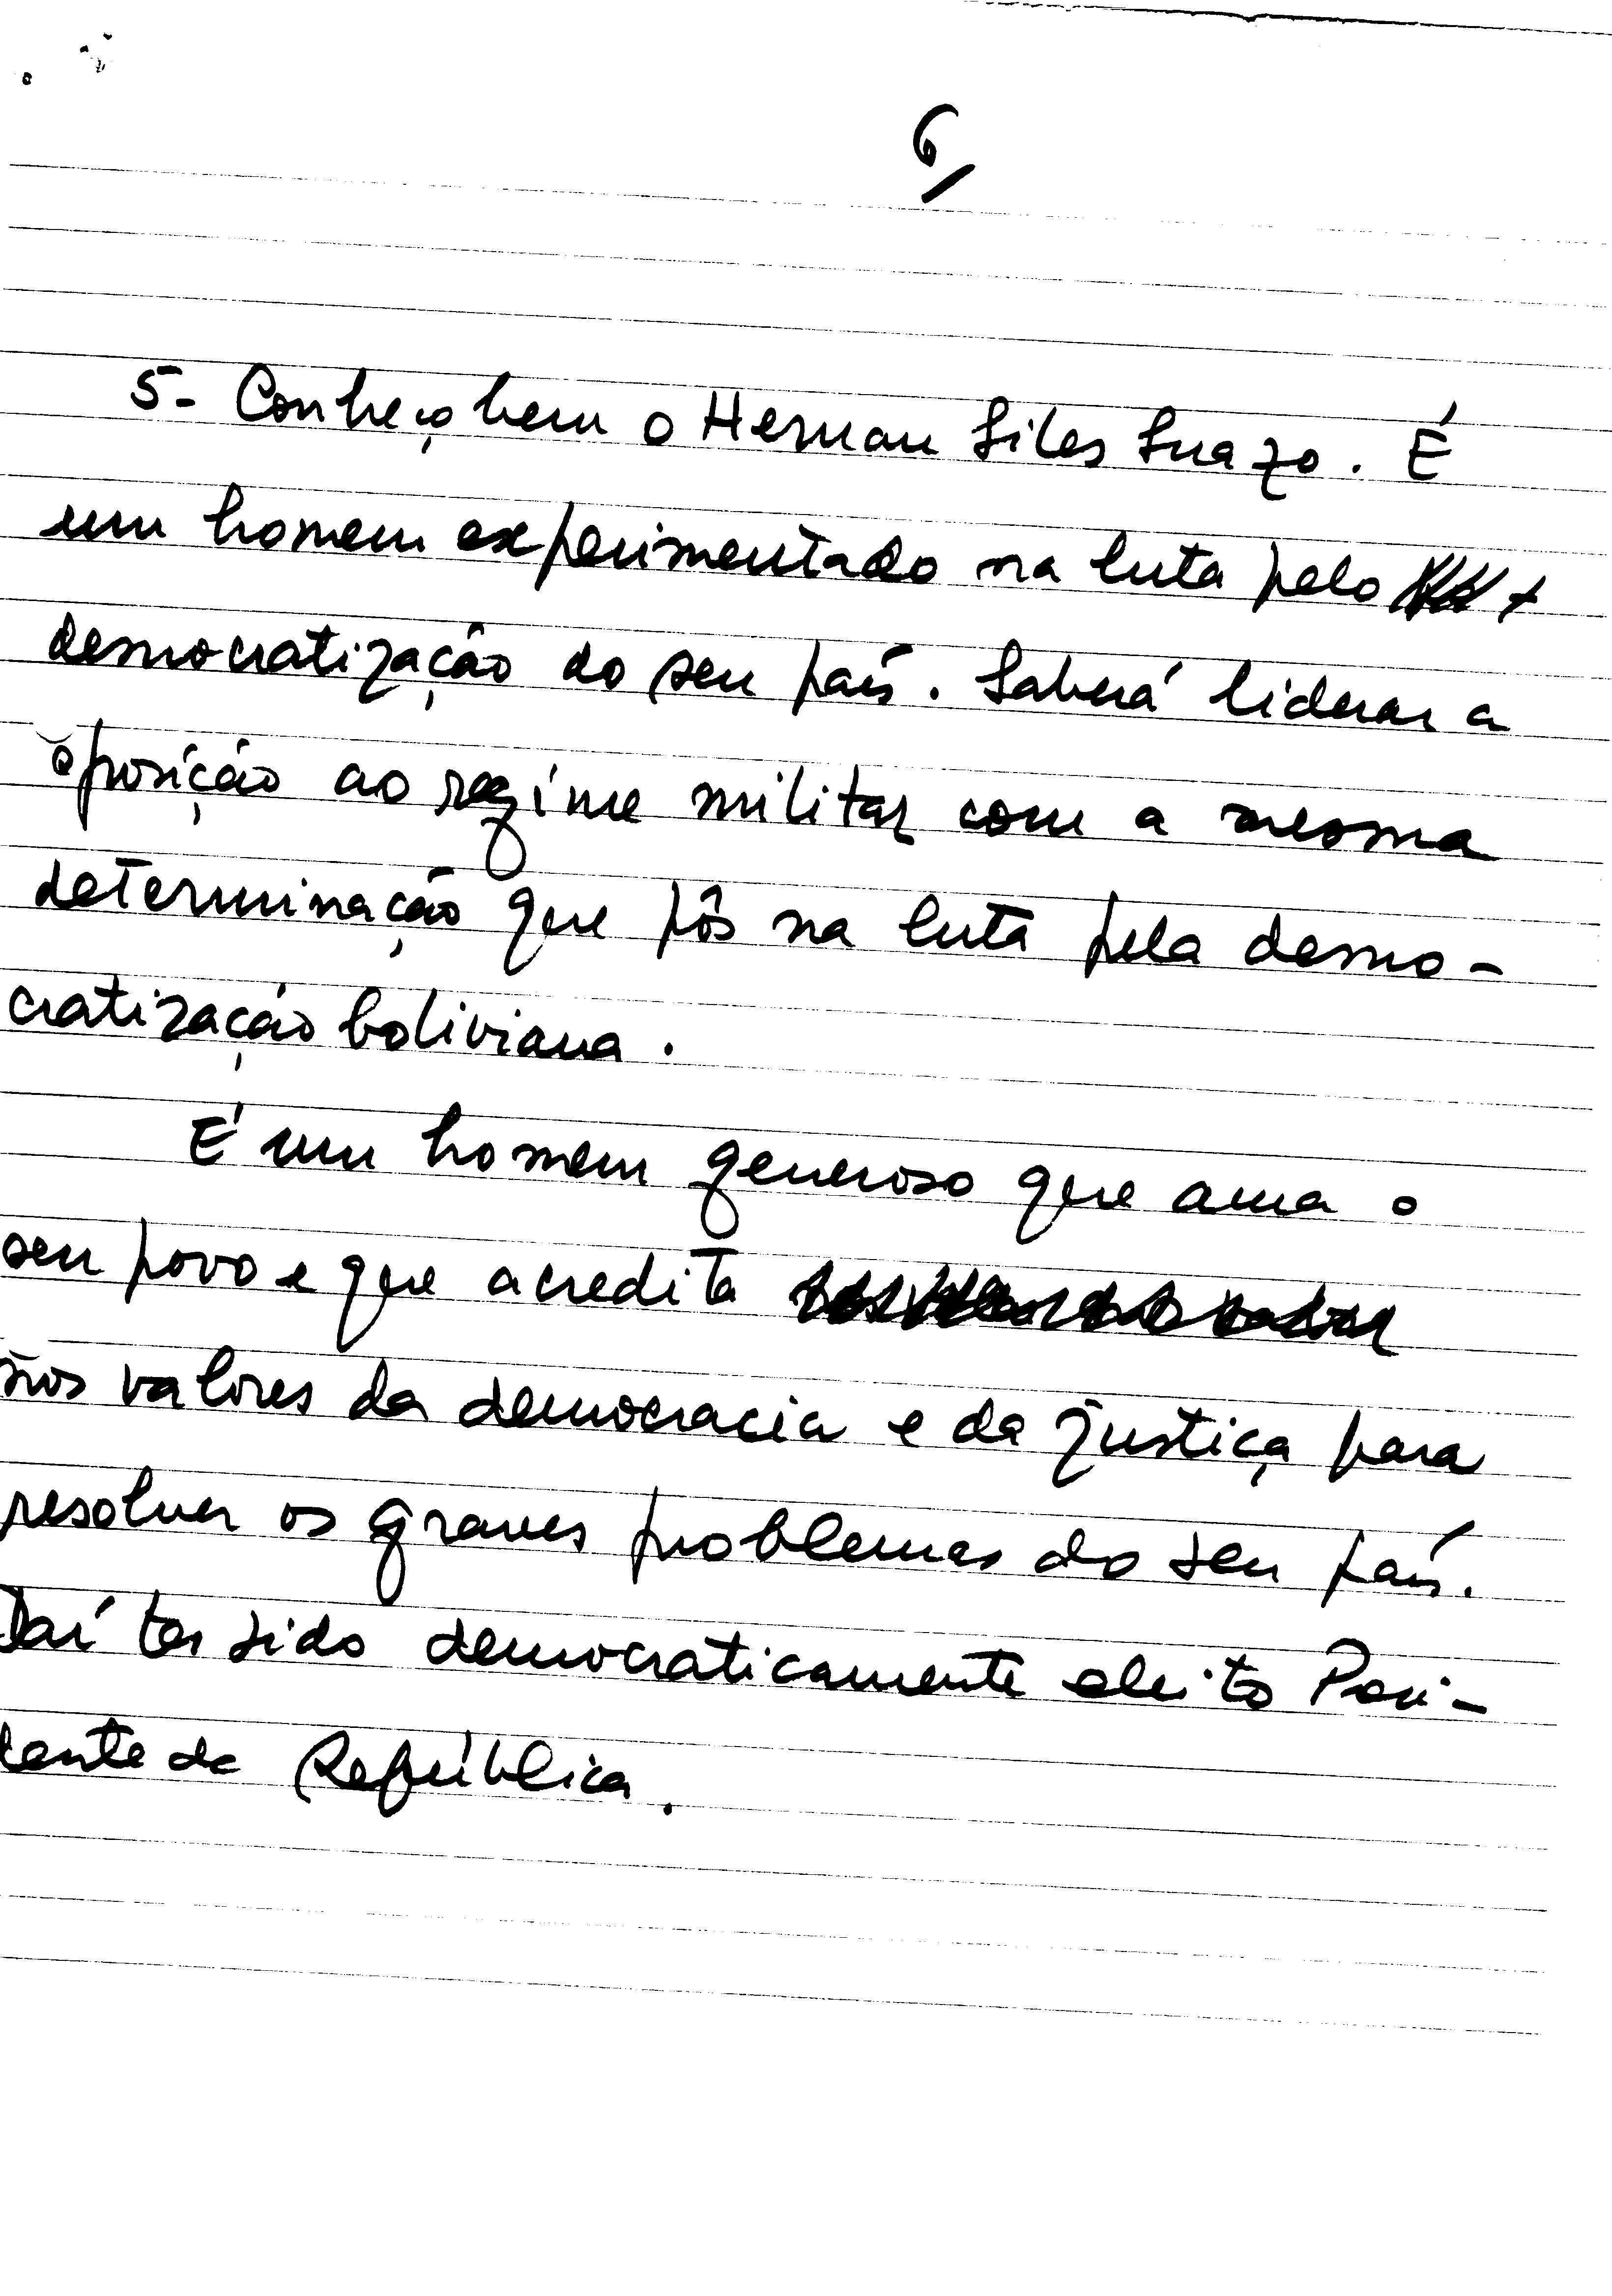 6/
5- Conheço bem o Hernan Siles Suazo. É
um homem experimentado na luta pelo
democratização do seu país. Saberá liderar a
oposição ao regime militar com a mesma
determinação que pôs na luta pela demo-
cratização boliviana.
É um homem generoso que ama o
seu povo e que acredita
nos valores da democracia e da justiça para
resolver os graves problemas do seu país.
Daí ter sido democraticamente eleito Presi-
dente da República.